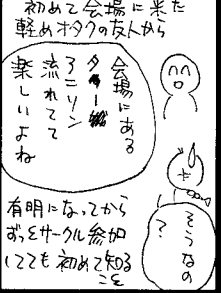 初めて会場に来た
軽めオタクの友人から
会場にある
タワー
アニソン
流れてて
楽しいよね
そうなの
?
有明になってから
ずっとサークル参加
してても初めて知る
ことを